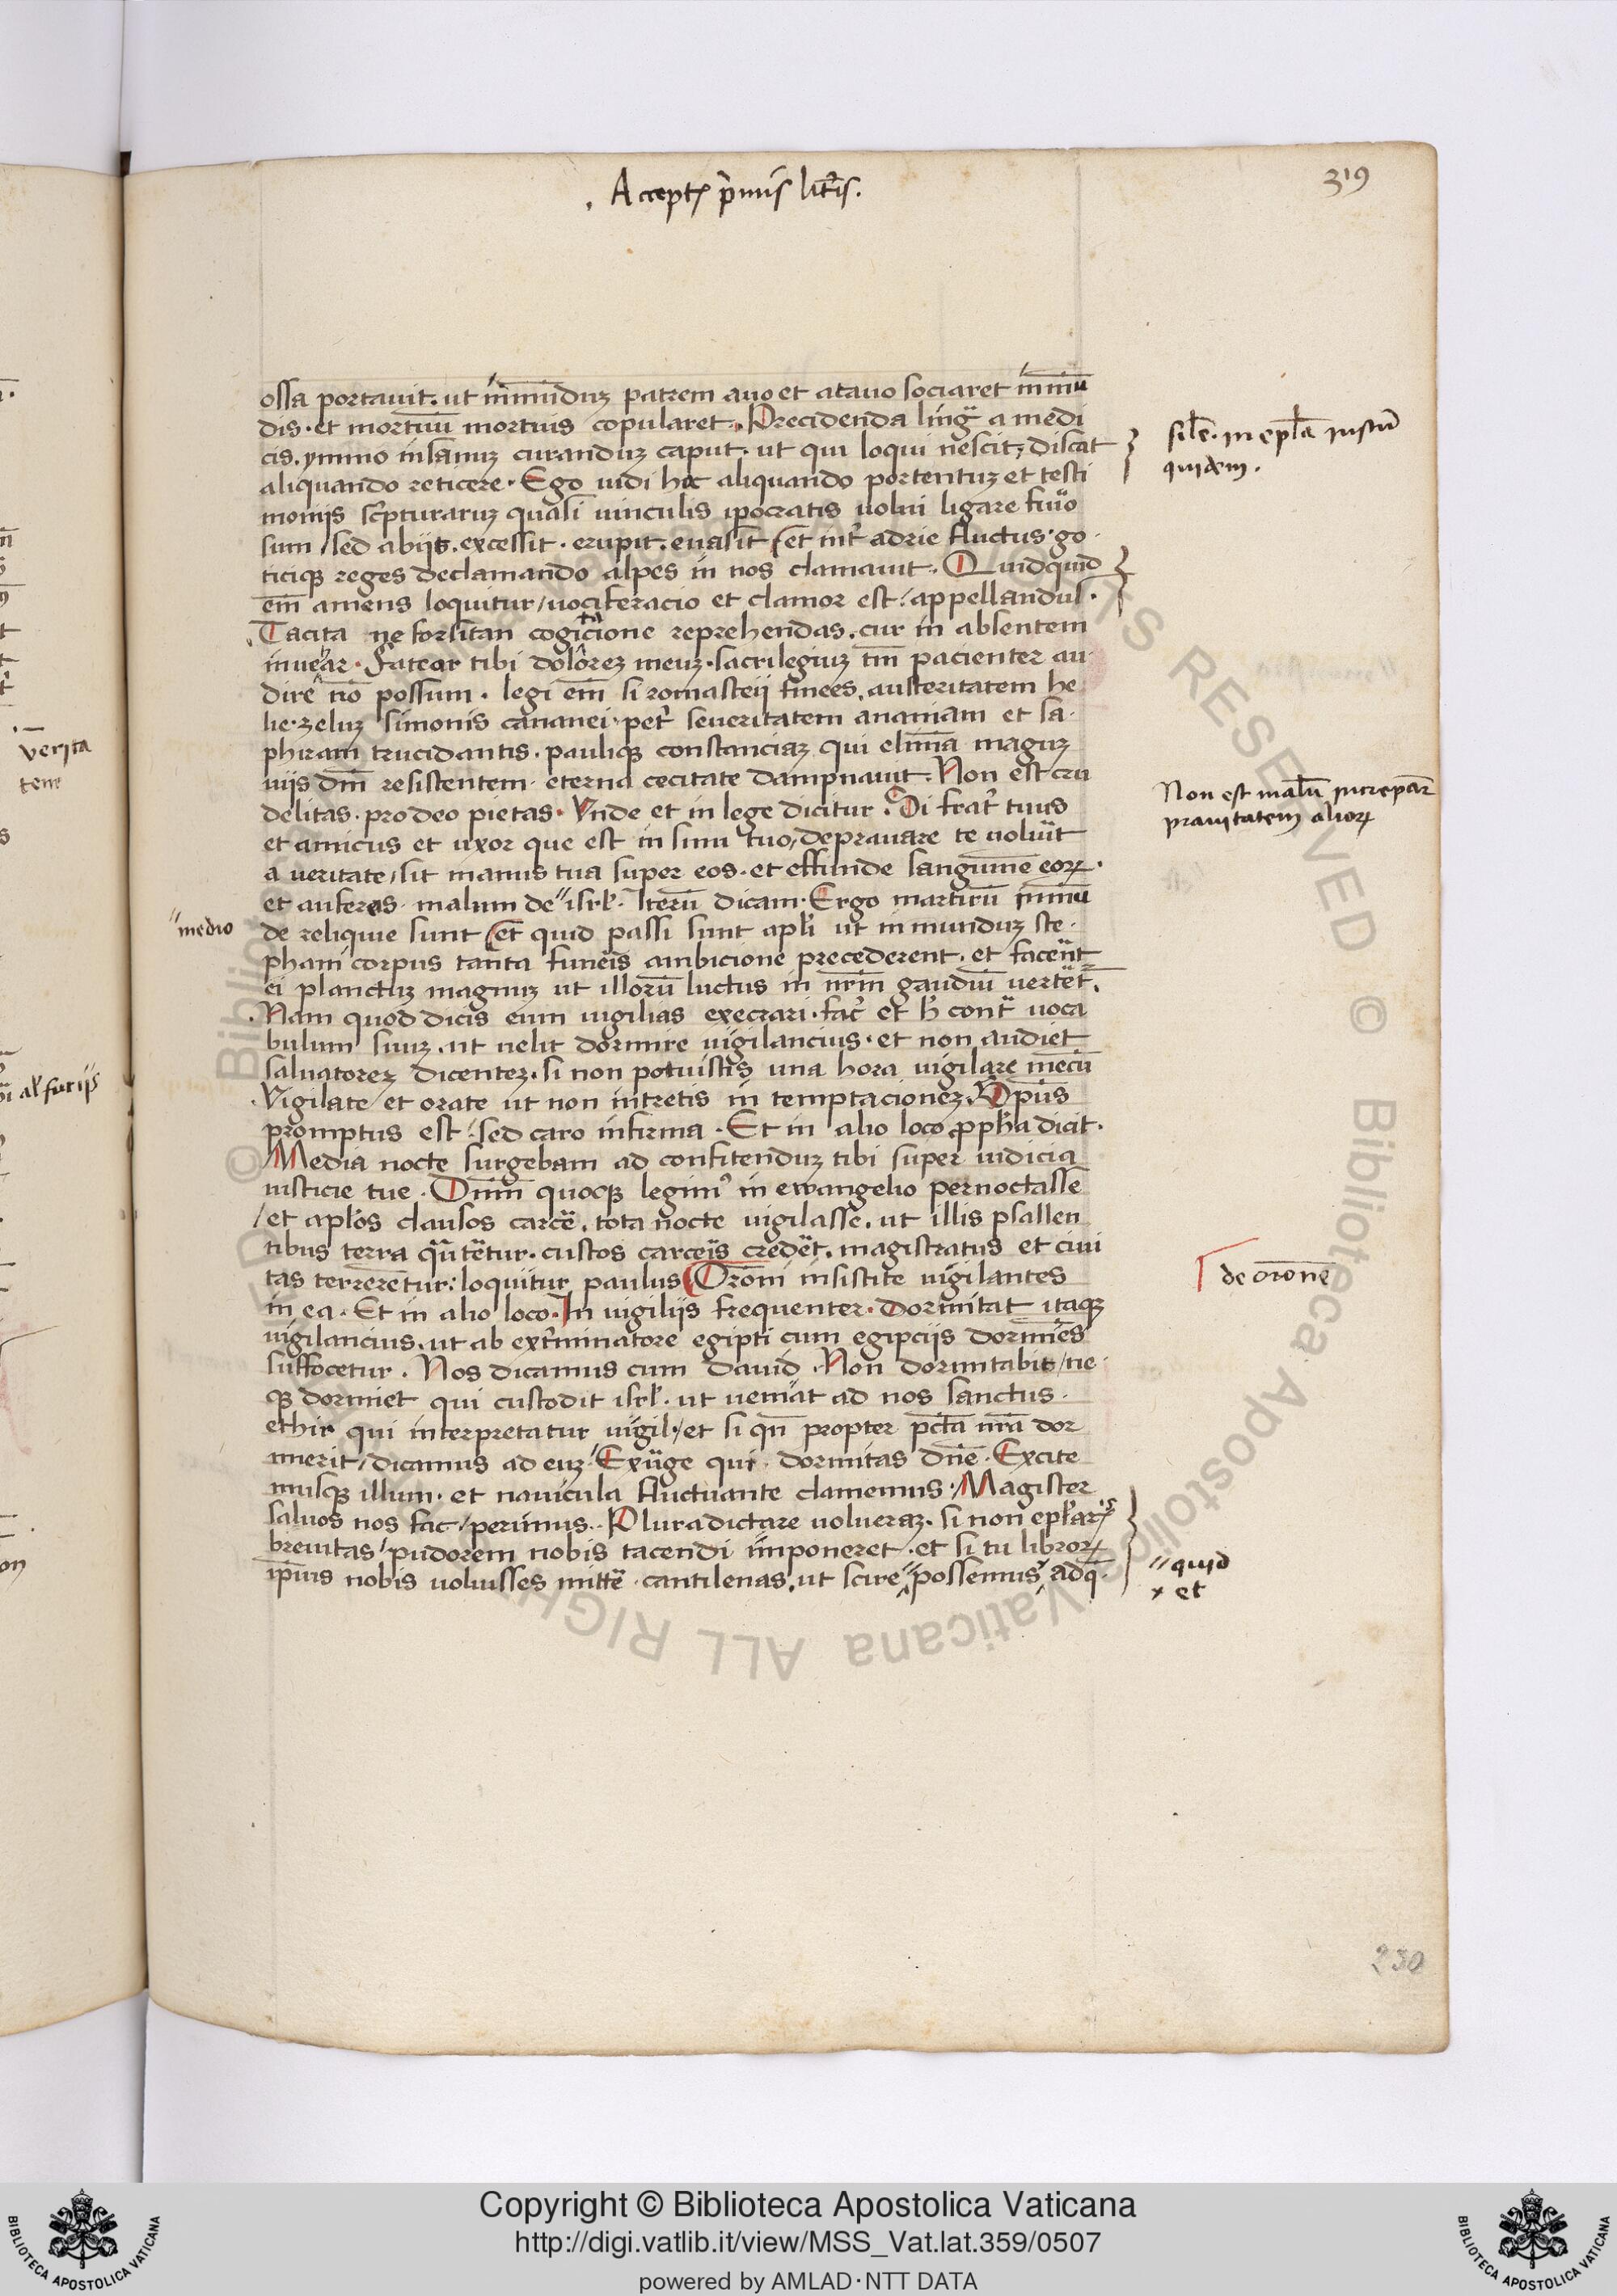 Accept(is) p̄mis lr̄is.
319
ossa portauit. ut īmūduz patrem auo et atauo sociaret īmū
dis. et mortuū mortuis copularet. Precidenda lingᵃ a medi
cis. ymmo insanuz curanduz caput. ut qui loqui nescit, discat
aliquando reticere. Ego uidi hoc aliquando portentuz et testi
monijs scpturaruz quasi uinculis ipocratis uolui ligare furio
sum / sed abijt. excessit. erupit. euasit et int̓ adrie fluctus. go
ticiqꝫ reges declamando alpes in nos clamauit. Quidquid
em̄ amens loquitur / uociferacio et clamor est appellandus.
Tacita ne forsitan cogitacione reprehendas. cur in absentem
inuehar. Fatear tibi dolorez meuz. sacrilegiuz tm̄ pacienter au
dire nō possum. legi em̄ si romasteii finees. austeritatem he
lie. zeluz simonis cananei. pet̓ seueritatem ananiam et sa
phiram trucidantis. pauliqꝫ constanciaz qui elimā maguz
uijs dm̄ resistentem eterna cecitate dampnauit. Non est cru
delitas. pro deo pietas. Vnde et in lege dicitur. Si frat̓ tuus
et amicus et uxor que est in sinu tuo, deprauare te uoluīt
a veritate / sit manus tua super eos. et effunde sanguinē eoꝝ.
et auferas malum de " isrl̓. Iterū dicam. Ergo martirū īmū
de reliquie sunt et quid passi sunt apl̓i ut in munduz ste
phani corpus tanta funeris ambicione precederent. et facerēt
ei planctuz magnuz ut illorū luctus in nr̄m gaudiū uertēt.
Nam quod dicis eum uigilias execrari. fac̓ et h̓ contᵃ uoca
bulum suuz. ut uelit dormire uigilancius. et non audiet
saluatorez dicentez. si non potuistis una hora uigilare mecū
Vigilate et orate ut non intretis in temptacionez. Sp̄us
promptus est / sed caro infirma. Et in alio loco ꝓph̓a dicit.
Media nocte surgebam ad confitenduz tibi super iudicia
iusticie tue. Dn̄m quoqꝫ legim̓ in ewangelio pernoctasse
et apl̓os clausos carcē. tota nocte uigilasse. ut illis psallen
tibus terra quatētur. custos carceris credēt. magistratus et ciui
tas terrerētur: loquitur paulus Orōni insistite uigilantes
in ea. Et in alio loco. In uigilijs frequenter. Dormitat itaqꝫ
uigilancius. ut ab ext̓minatore egipti cum egipcijs dormiēs
suffocetur. Nos dicamus cum dauid. Non dormitabit / ne
qꝫ dormiet qui custodit isrl̓. ut ueniat ad nos sanctus
ethir qui interpretatur uigil. / et si qn̄ propter pctā nrā dor
mierit / dicamus ad euz. Exurge qui dormitas dn̄e. Excite
musqꝫ illum. et nauicula fluctuante clamemus. Magister
saluos nos fac / perimus. Plura dictare uolueraz. si non epl̓aris
breuitas / pudorem nobis tacendi imponeret. et si tu libroꝝ
ip̄ius nobis uoluisses mittē cantilenas. ut scire possemus adq̄
sil̓e. in epl̓a iustū
quidem.
Non est malū increpar̄
prauitatem alioꝝ
" medio
de orōne
" quid
× et
verita
tem
al̓ furijs
230
Copyright © Biblioteca Apostolica Vaticana
http://digi.vatlib.it/view/MSS_Vat.lat.359/0507
powered by AMLAD·NTT DATA
BIBLIOTECA APOSTOLICA VATICANA
BIBLIOTECA APOSTOLICA VATICANA
© Biblioteca Apostolica Vaticana ALL RIGHTS RESERVED